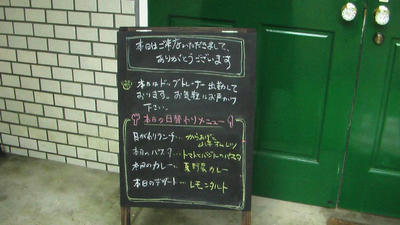 本日はご来店いただきまして、
ありがとうございます
本日はドッグトレーナー出勤して
おります。お気軽にお声がけ
下さい。
本日の日替わりメニュー
日がわりランチ…からあげと
本日のパスタ…トマトとバジルのパスタ
本日のカレー…夏野菜カレー
本日のデザート…レモンタルト